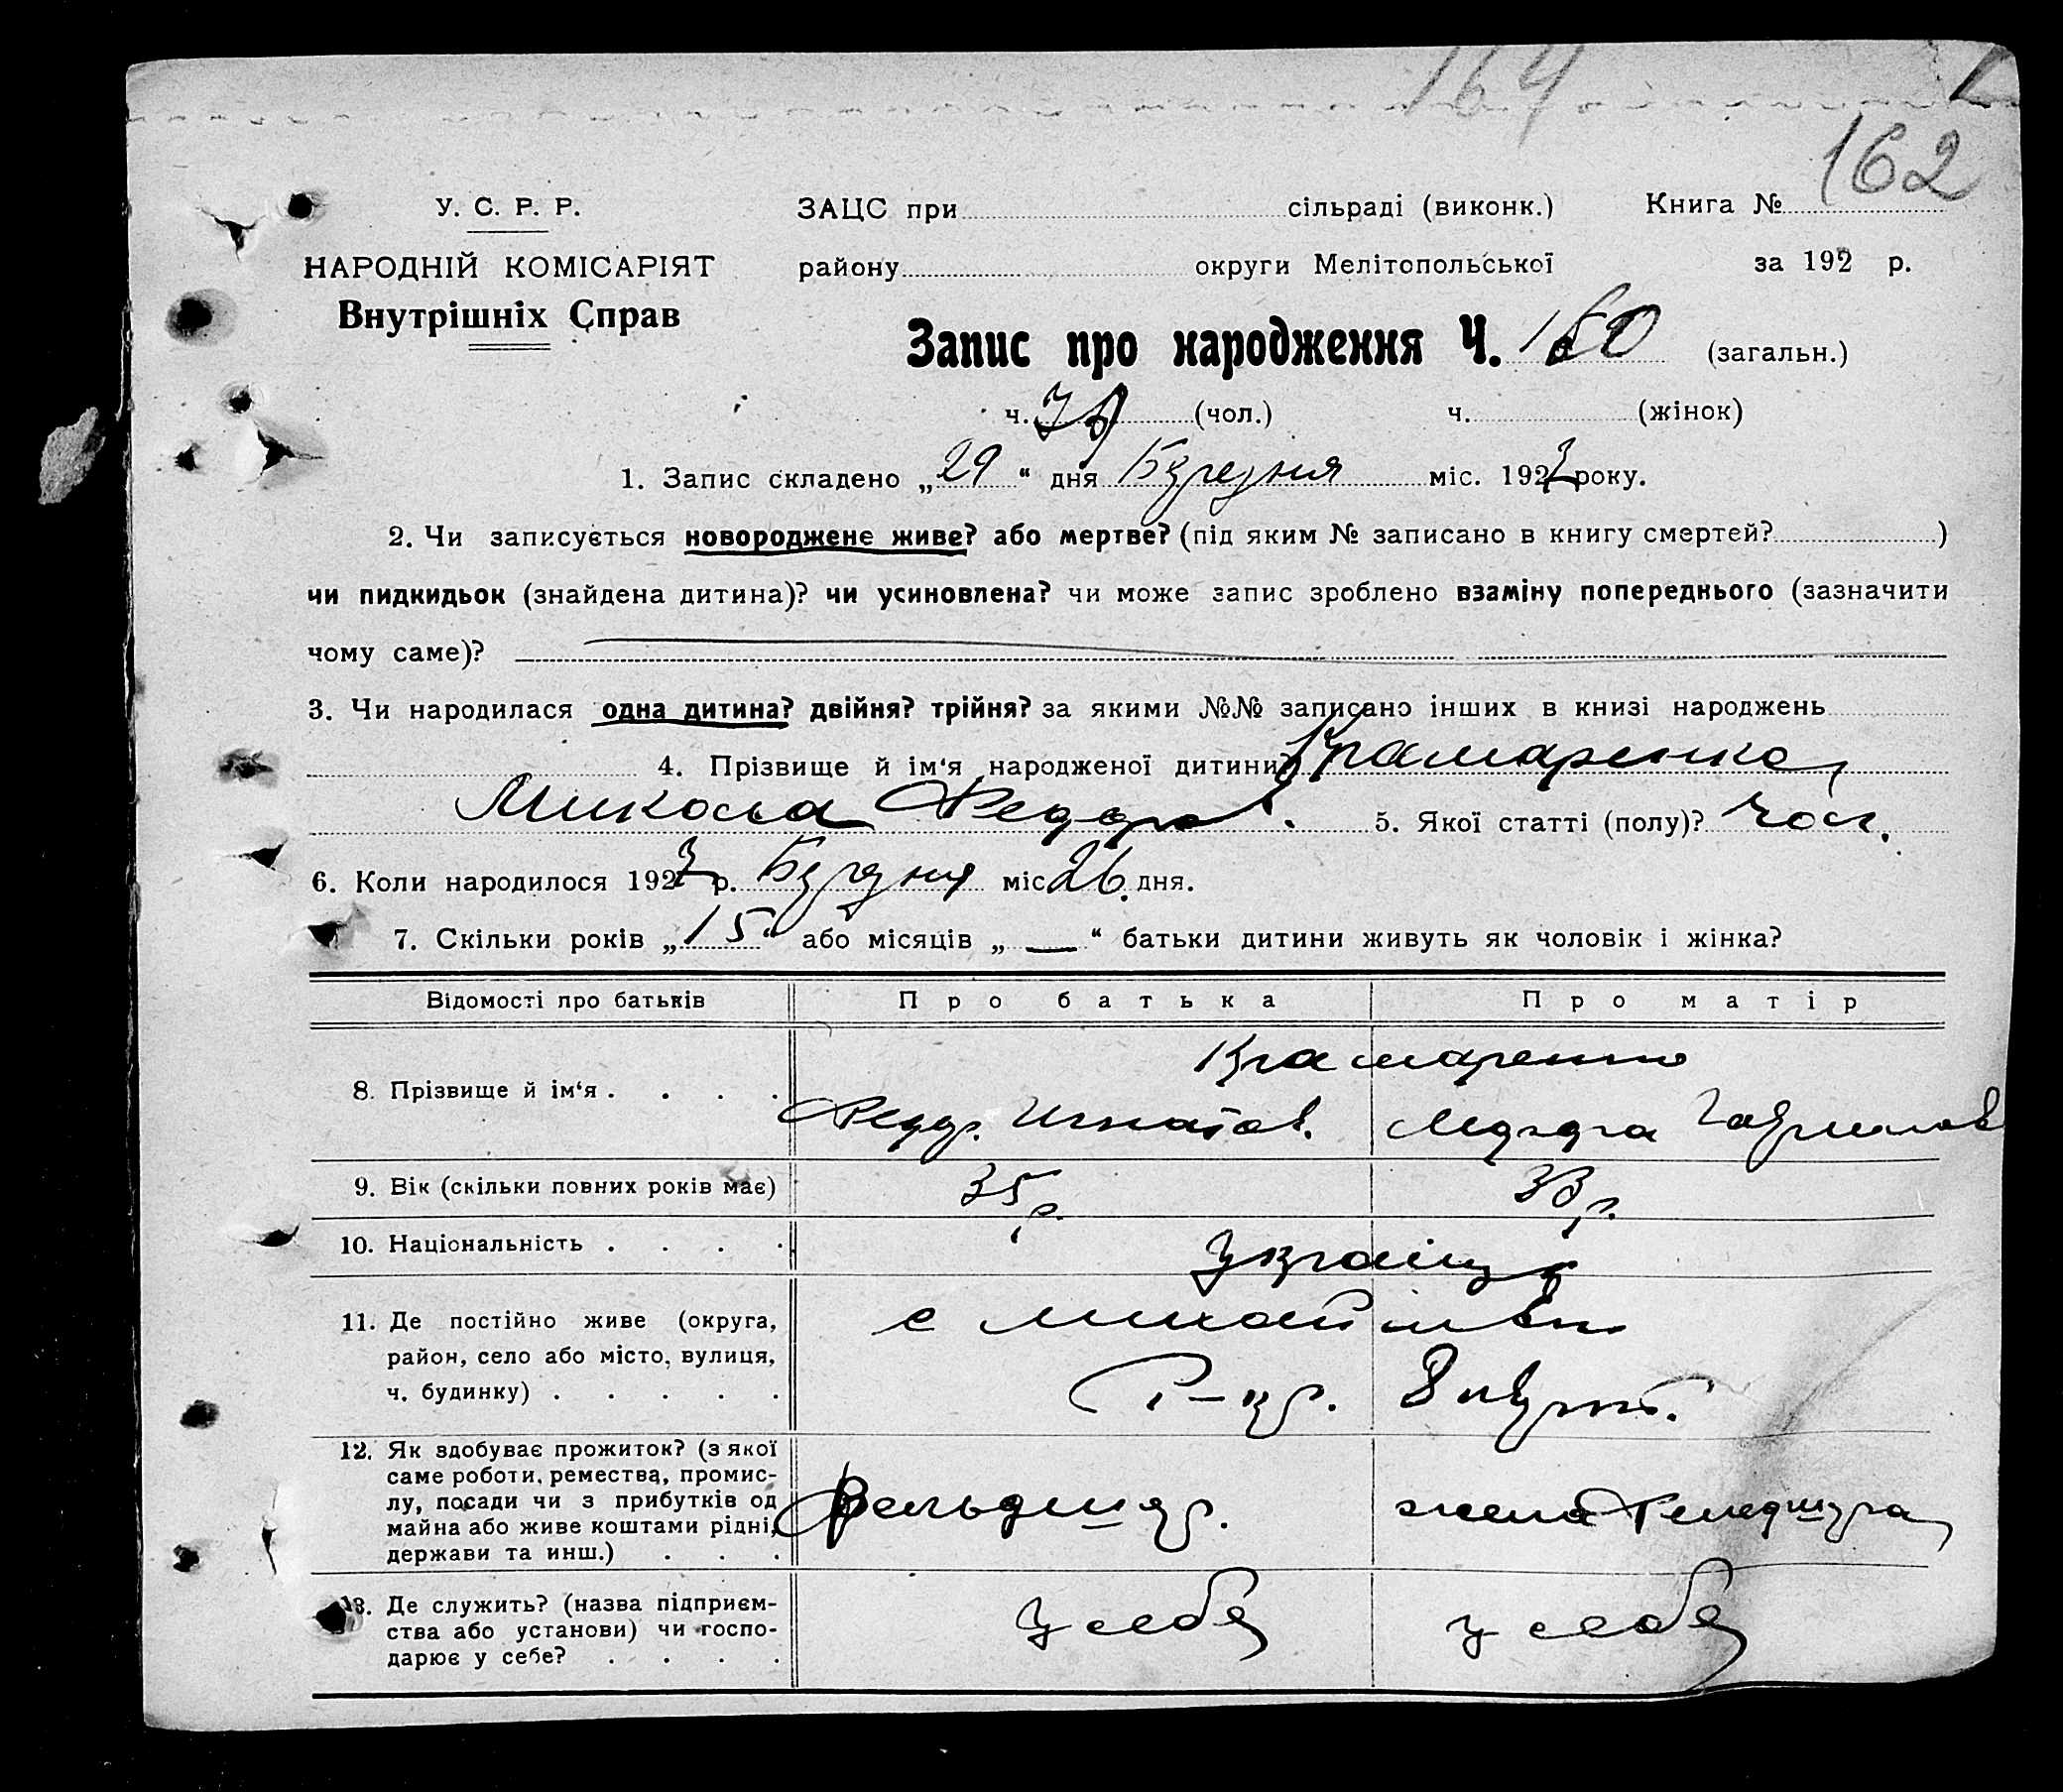 164
162
У. С. Р. Р.
НАРОДНІЙ КОМІСАРІЯТ
Внутрішніх Справ
ЗАЦС при сільраді (виконк.) Книга №
району округи Мелітопольської за 192 р.
Запис про народження Ч. 150 (загальн.)
ч. (чол.) ч. (жінок)
1. Запис складено „29“ дня Березня міс. 1927 року.
2. Чи записується новороджене живе? або мертве? (під яким № записано в книгу смертей? )
чи пидкидьок (знайдена дитина)? чи усиновлена? чи може запис зроблено взаміну попереднього (зазначити
чому саме)?
3. Чи народилася одна дитина? двійня? трійня? за якими №№ записано інших в книзі народжень
4. Прізвище й ім‘я народженої дитини Крамаренко
Микола Федоров. 5. Якої статті (полу)? чол.
6. Коли народилося 1927 р. Березня міс 26. дня.
7. Скільки років „15“ або місяців „ — “ батьки дитини живуть як чоловік і жінка?
Відомості про батьків Про батька Про матір
8. Прізвище й ім‘я . . . . Крамаренко
Федор. Игнатов. Гаврилов
9. Вік (скільки повних років має) 35 р. 33 р.
10. Національність . . . . Українц
11. Де постійно живе (округа, с Михайлівка
район, село або місто, вулиця,
ч. будинку) . . . . .
12. Як здобуває прожиток? (з якої
саме роботи, ремества, промис-
лу, посади чи з прибутків од Фельдшер. жена Фельдшера
майна або живе коштами рідні,
держави та инш.) . . .
13. Де служить? (назва підприєм-
ства або установи) чи госпо- У себе у себе
дарює у себе? . . . .